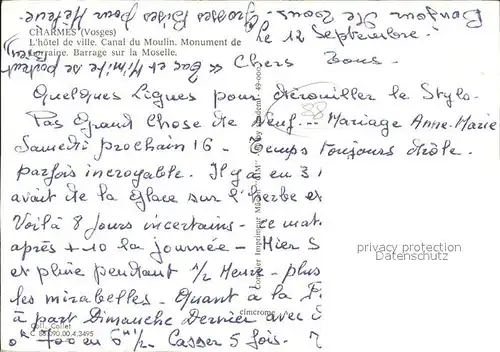 Bonjour de Tous.
Grosses Bises pour Hector.
CHARMES (Vosges)
L'hôtel de ville. Canal du Moulin. Monument de
Lorraine. Barrage sur la Moselle.
Zac et Mimite se portent
Le 12 Septembre.
Chers Tous.
Quelques Lignes pour dérouiller le Stylo.
Pas Grand Chose de Neuf... Mariage Anne-Marie
Samedi prochain 16 - Temps toujours drôle.
parfois incroyable. Il y a en 3 1
avait de la Glace sur l'herbe et
Voilà 8 Jours incertains - ce mat
après +10 la journée - Hier S
et pluie pendant 1/2 Heure - plus
les mirabelles - Quant à la P
à part Dimanche Dernier avec
en 6 h 1/2 Casser 5 fois.
privacy protection
cimcrome
Coll. Collet
C 88.090.00.4.3495
Combier Imprimeur Mâcon "CIM"